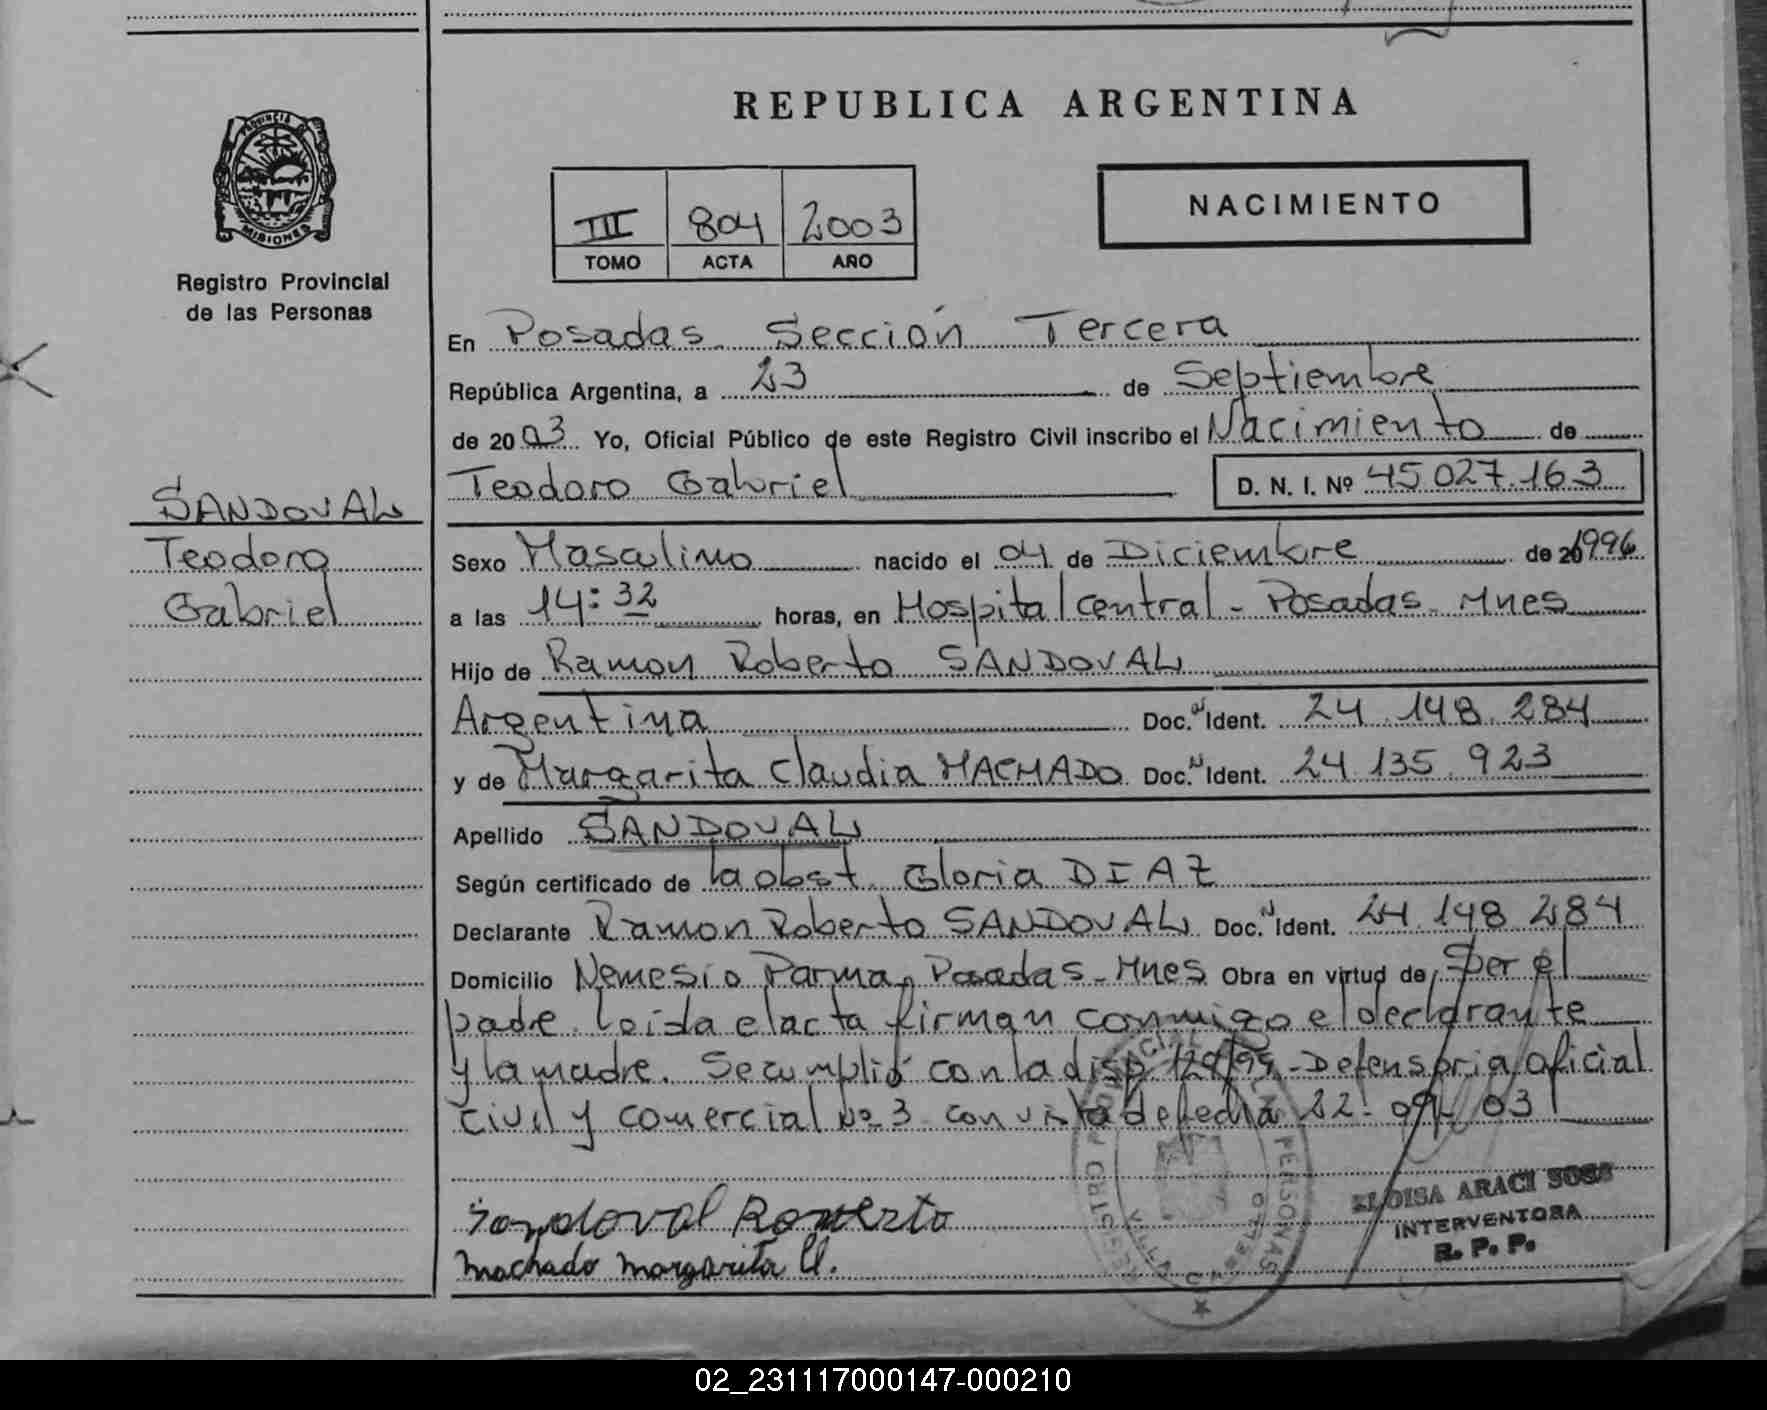 PROVINCIA
MISIONES
Registro Provincial
de las Personas
SANDOVAL
Teodoro
Gabriel
REPUBLICA ARGENTINA
III 804 2003
TOMO ACTA AÑO
NACIMIENTO
En Posadas Sección Tercera
República Argentina, a 23 de Septiembre
de 2003 Yo, Oficial Público de este Registro Civil inscribo el Nacimiento de
Teodoro Gabriel D. N. I. Nº 45.027.163
Sexo Masculino nacido el 04 de Diciembre de 1996
a las 14:32 horas, en Hospital central - Posadas - Mnes
Hijo de Ramon Roberto SANDOVAL
Argentina Doc. N Ident. 24.148.284
y de Margarita Claudia MACHADO Doc. N Ident. 24.135.923
Apellido SANDOVAL
Según certificado de la obst. Gloria DIAZ
Declarante Ramon Roberto SANDOVAL Doc. N Ident. 24.148.284
Domicilio Nemesio Parma, Posadas - Mnes Obra en virtud de Ser el
padre. Leída el acta firman conmigo el declarante
y la madre. Se cumplió con la disp. 129/99 - Defensoria oficial
civil y comercial Nº 3 con vista de fecha 22-09-03
Sandoval Roberto
Machado Margarita Cl.
ELOISA ARACI SOSA
INTERVENTORA
R. P. P.
02_231117000147-000210